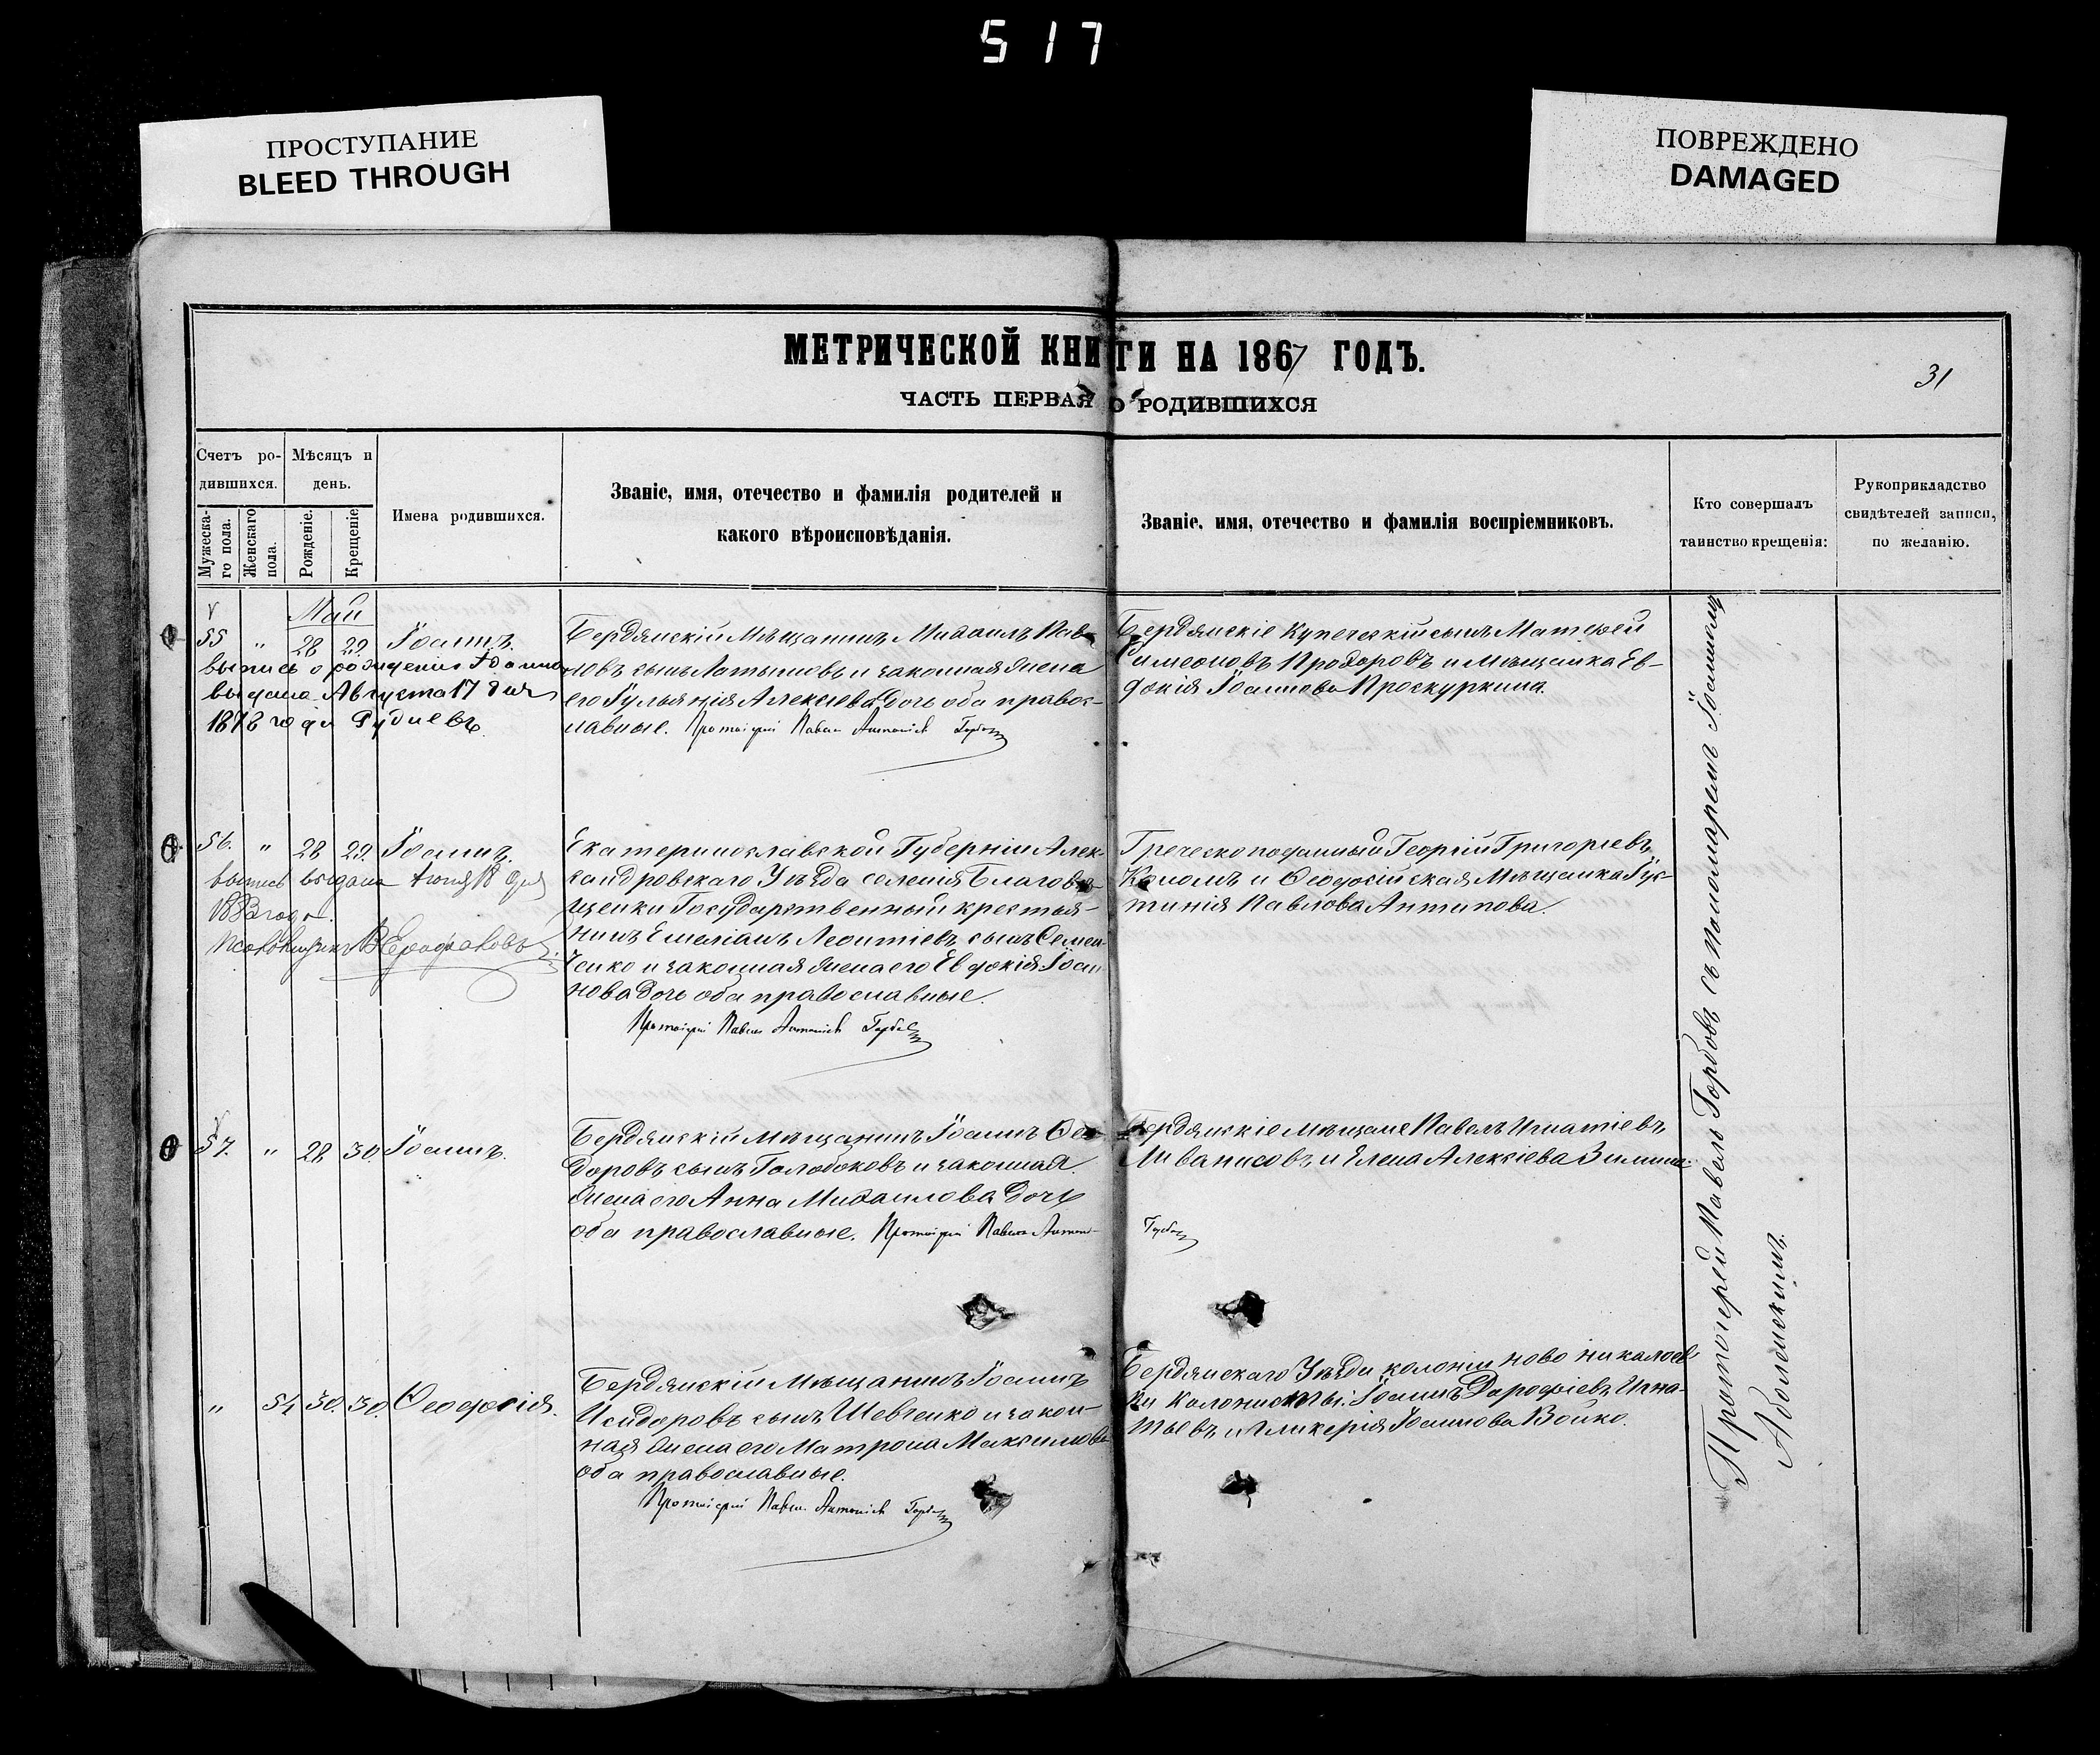 517
ПРОСТУПАНИЕ
BLEED THROUGH
ПОВРЕЖДЕНО
DAMAGED
МЕТРИЧЕСКОЙ КНИГИ НА 1867 ГОДЪ.
ЧАСТЬ ПЕРВАЯ О РОДИВШИХСЯ
31
Счетъ ро-
дившихся.
Мужеска-
го пола.
Женскаго
пола.
Мѣсяцъ и
день.
Рожденіе.
Крещеніе
Имена родившихся.
Званіе, имя, отечество и фамилія родителей и
какого вѣроисповѣданія.
Званіе, имя, отечество и фамилія воспріемниковъ.
Кто совершалъ
таинство крещенія:
Рукоприкладство
свидѣтелей записи,
по желанію.
Май
55 " 28 29. Іоаннъ.
выпись о рожденіи Іоанна
выдана Августа 17 дня
1878 года
Бердянскій Мѣщанинъ Михаилъ Пав-
ловъ сынъ Латышовъ и законная жена
его Іульянія Алексѣева дочь оба правос-
лавные. Протоіерей Павелъ Антоніевъ Горбовъ
Бердянскіе Купеческій сынъ Матфей
Симеоновъ Прохоровъ и Мѣщанка Ев-
докія Іоаннова Проскуркина.
56. " 28 29. Іоаннъ.
выпись выдана Іюня 18 дня
Екатеринославской Губерніи Алек-
сандровскаго Уѣзда селенія Благовѣ-
щенки Государственный крестья-
нинъ Емеліанъ Леонтіевъ сынъ Семен-
ченко и законная жена его Евдокія Іоан-
нова дочь оба православные.
Протоіерей Павелъ Антоніевъ Горбовъ
Греческоподанный Георгій Григорьевъ
и Ѳеодосійская Мѣщанка Іус-
тинія Павлова Антипова.
57. " 28 30. Іоаннъ.
Бердянскій Мѣщанинъ Іоаннъ Ѳео-
доровъ сынъ Голобоковъ и законная
жена его Анна Михаилова дочь
оба православные. Протоіерей Павелъ Антон-
Бердянскіе Мѣщане Павелъ Игнатіевъ
Ливанисовъ и Елена Алексіева Зимина
Горбовъ
" 54 30. 30. Ѳеодосія.
Бердянскій Мѣщанинъ Іоаннъ
Исидоровъ сынъ Шевченко и закон-
ная жена его Матрона Максимова
оба православные.
Протоіерей Павелъ Антоніевъ Горбовъ
Бердянскаго Уѣзда колоніи ново николаев-
ки Колонисты: Іоаннъ Дорофіевъ Игна-
тьевъ и Гликерія Іоаннова Бойко.
Протоіерей Павелъ Горбовъ съ пономаремъ Іоанномъ
Аболенскимъ.